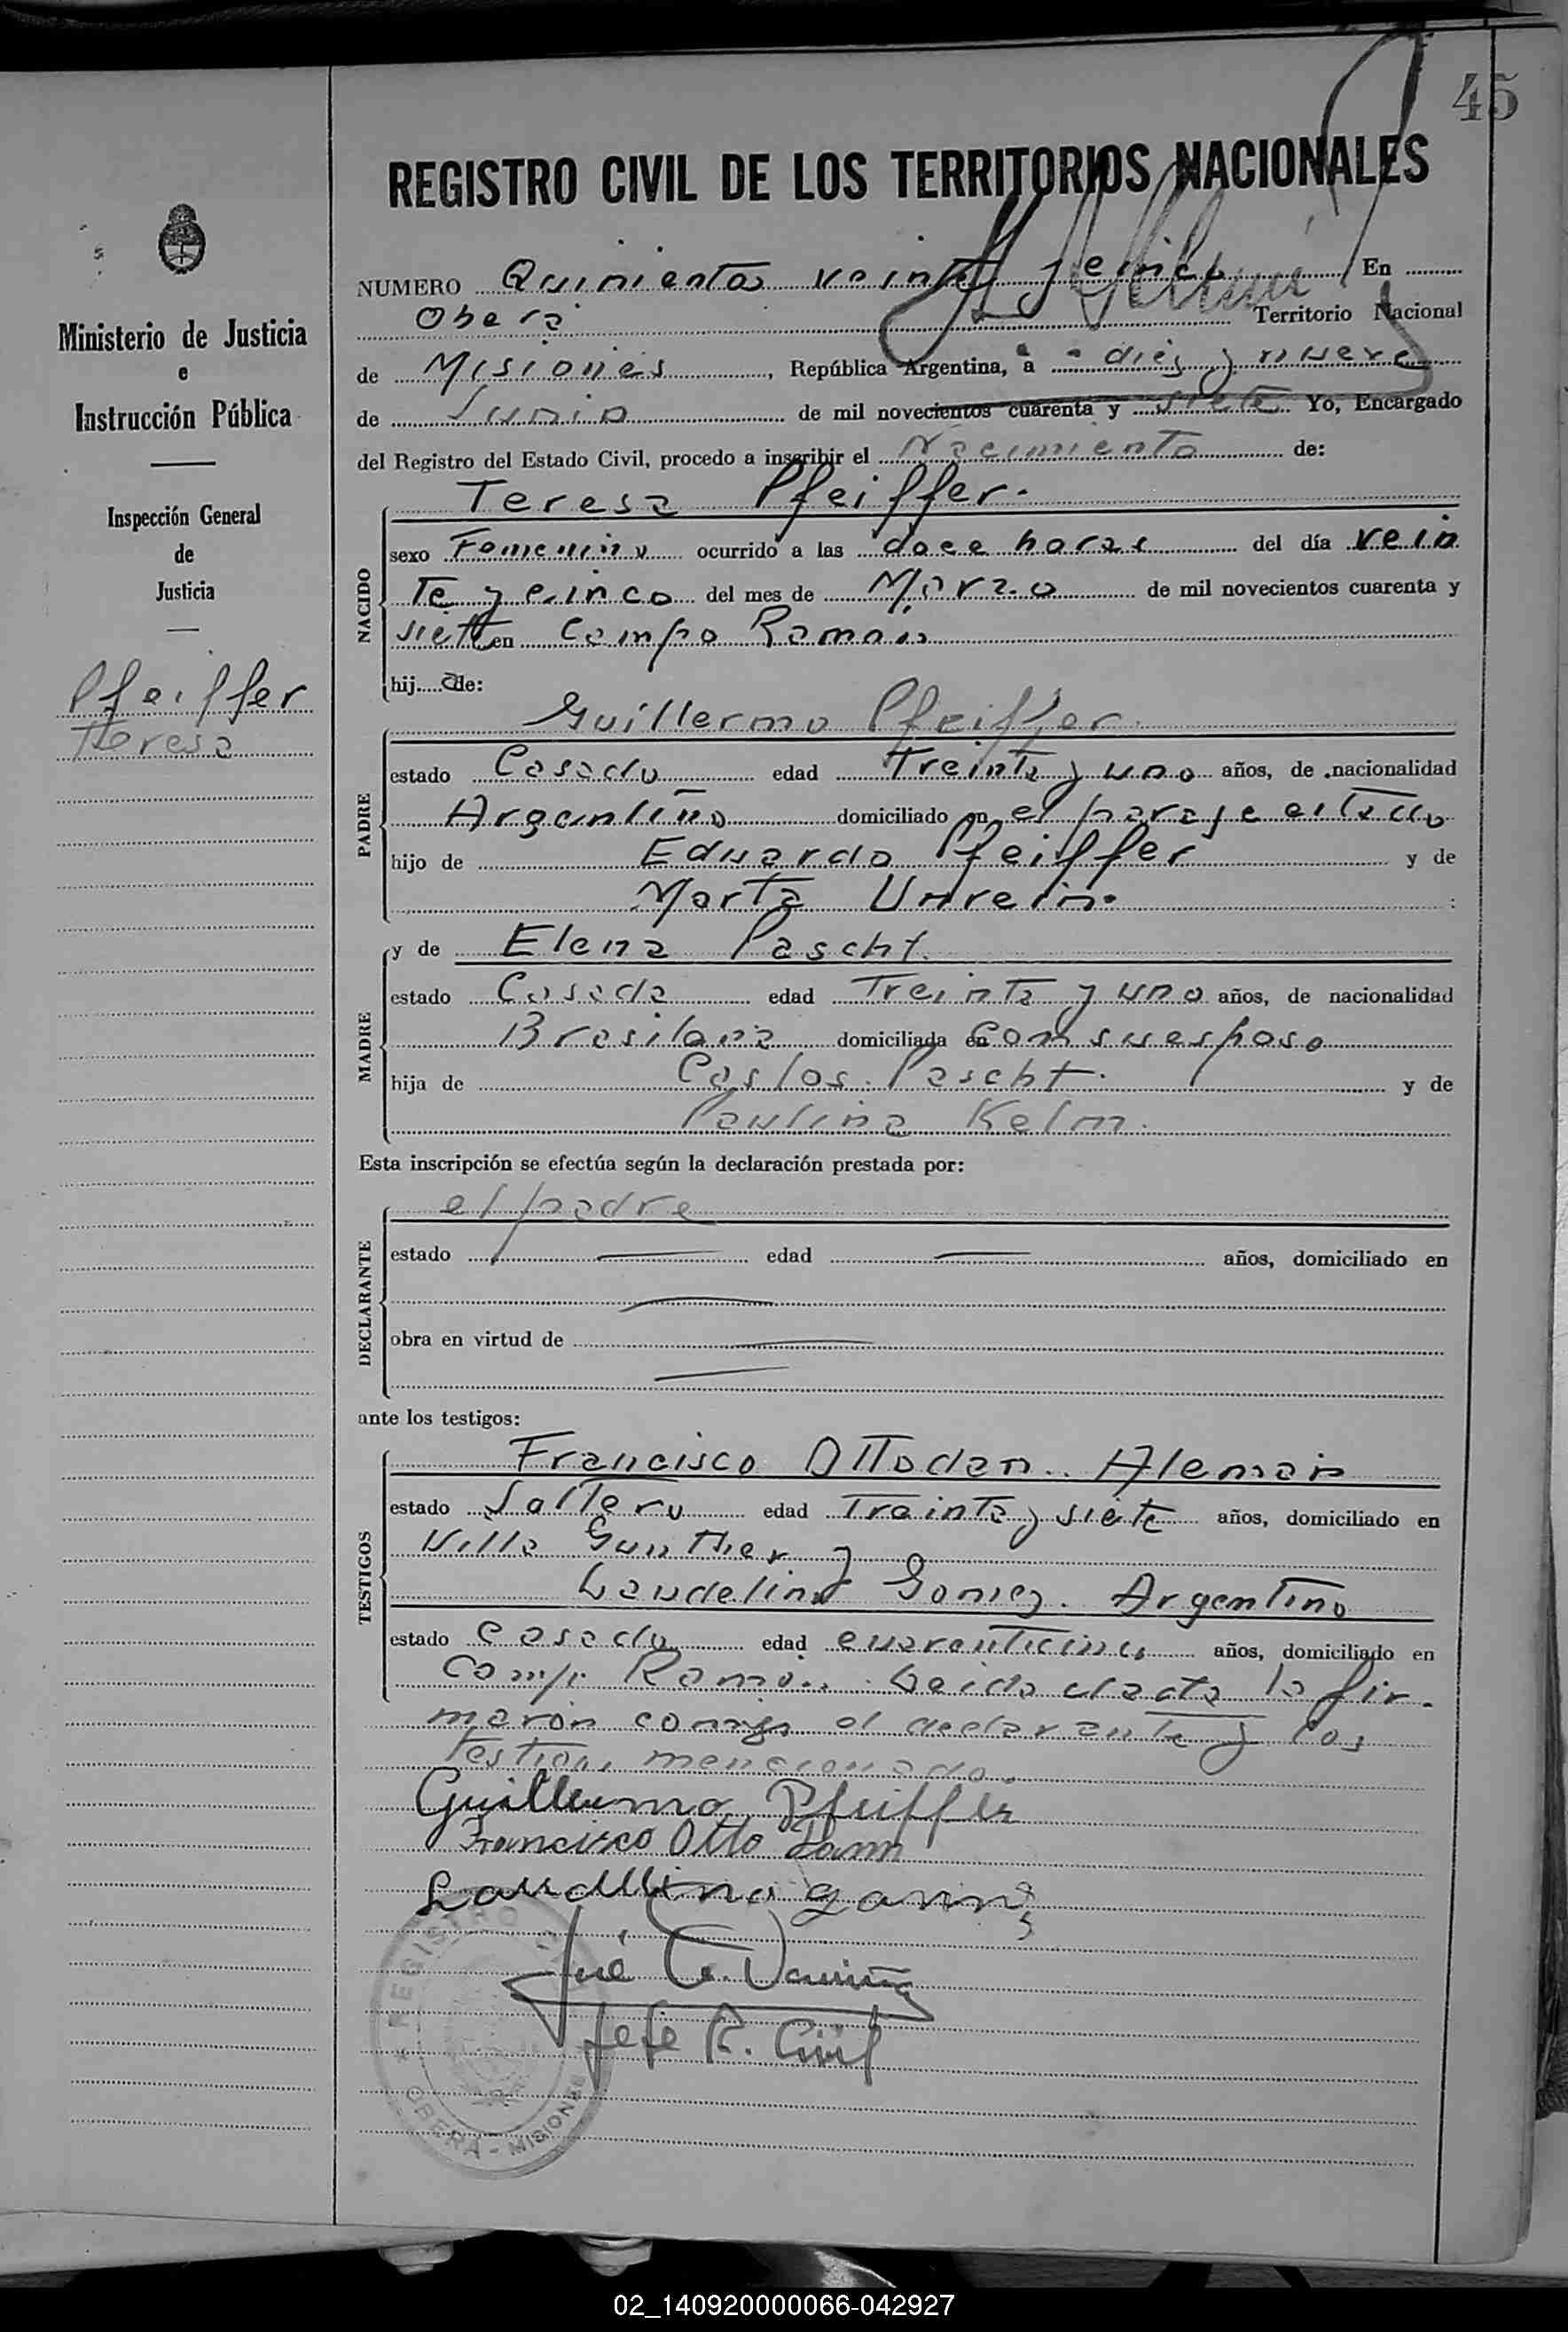 45
REGISTRO CIVIL DE LOS TERRITORIOS NACIONALES
NUMERO Quinientos veinte y cinco En
Oberá Territorio Nacional
de Misiones, República Argentina, a diez y nueve
de Junio de mil novecientos cuarenta y siete Yo, Encargado
del Registro del Estado Civil, procedo a inscribir el Nacimiento de:
Ministerio de Justicia
e
Instrucción Pública
Inspección General
de
Justicia
Pfeiffer
Teresa
NACIDO
Teresa Pfeiffer.
sexo Femenino ocurrido a las doce horas del día vein
te y cinco del mes de Marzo de mil novecientos cuarenta y
siete en Campo Ramon
hij a de:
PADRE
Guillermo Pfeiffer.
estado Casado edad Treinta y uno años, de nacionalidad
Argentino domiciliado en el paraje citado
hijo de Eduardo Pfeiffer y de
Marta Unrein.
MADRE
y de Elena Pascht.
estado Casada edad Treinta y uno años, de nacionalidad
Brasilana domiciliada en con su esposo
hija de Carlos Pascht. y de
Paulina Kelm.
Esta inscripción se efectúa según la declaración prestada por:
DECLARANTE
el padre
estado edad años, domiciliado en
obra en virtud de
ante los testigos:
TESTIGOS
Francisco Ottodan. Aleman
estado Soltero edad Treinta y siete años, domiciliado en
Villa Gunther y
Laudelino Gomez. Argentino
estado Casado edad cuarenticinco años, domiciliado en
Campo Ramon. Leida el acta la fir-
maron conmigo el declarante y los
Testigos mencionados.
Guillermo Pfeiffer
Francisco Otto Dann
Laudelino Gomez
José
Jefe R. Civil
REGISTRO
OBERÁ - MISIONES
02_140920000066-042927